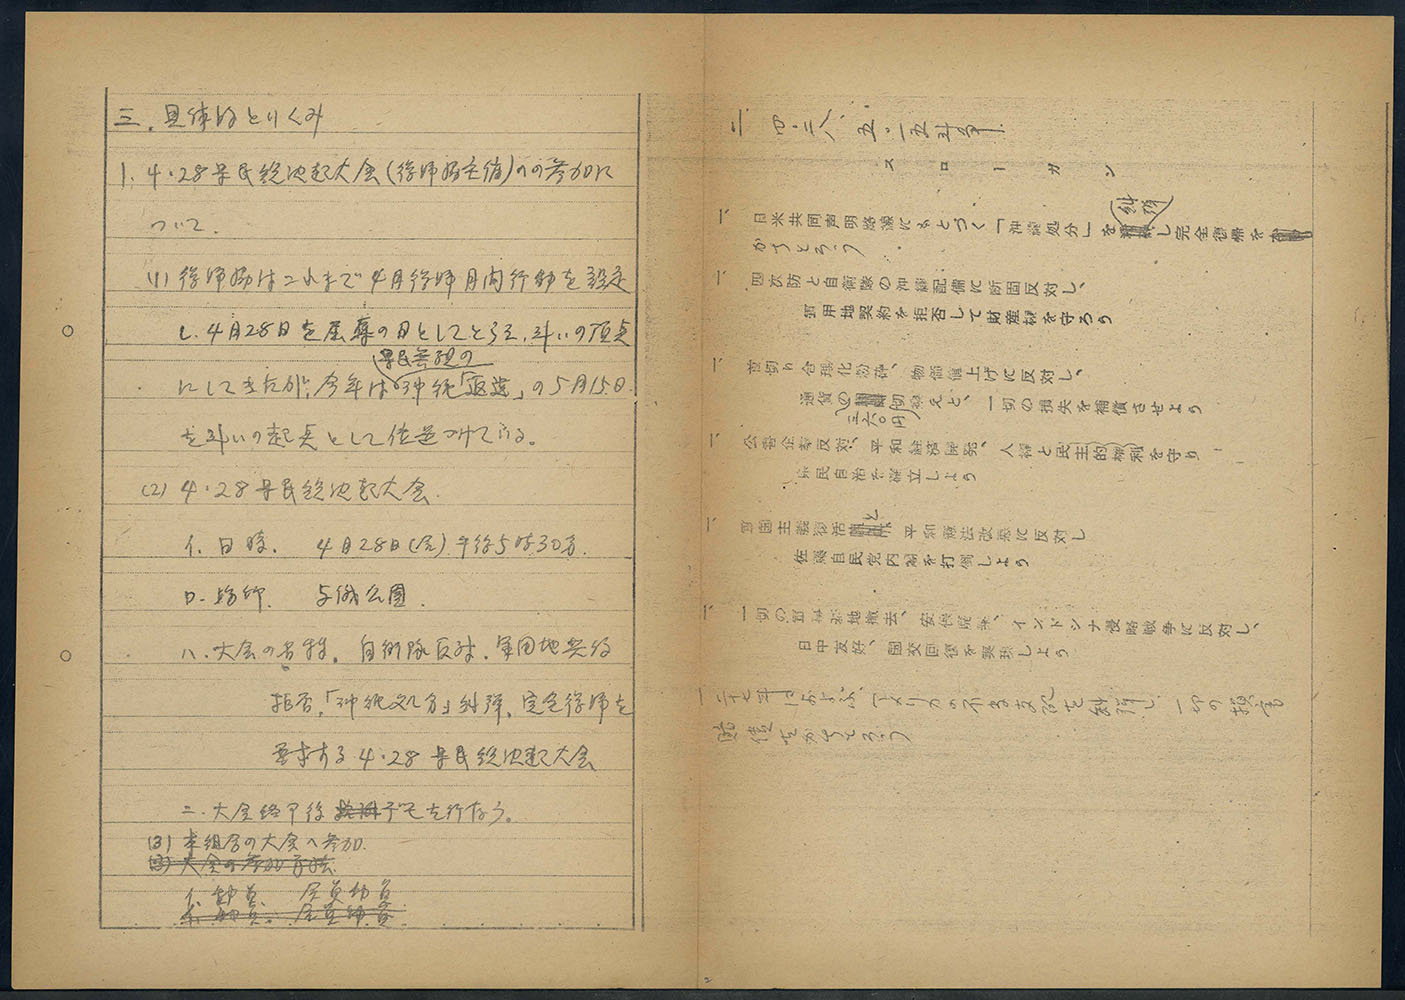 三、具体的とりくみ
1. 4・28県民総決起大会(復帰協主催)への参加に
ついて.
(1) 復帰協はこれまで4月復帰月間行動を設定
し、4月28日を屈辱の日としてとらえ、斗いの頂点
にしてきたが、今年は県民無視の沖縄「返還」の5月15日
を斗いの起点として位置づけている。
(2) 4・28県民総決起大会.
イ. 日時. 4月28日(金) 午後5時30分.
ロ. 場所. 与儀公園.
ハ. 大会の名称. 自衛隊反対、軍用地契約
拒否、「沖縄処分」糾弾、完全復帰を
要求する4・28県民総決起大会
ニ. 大会終了後デモを行なう。
(3) 本組合の大会へ参加.
(3) 大会の参加方法
イ. 動員. 全員動員
イ. 動員. 全員動員
二、四・二八、五・一五斗争
スローガン
一、日米共同声明路線にもとづく「沖縄処分」を糾弾し完全復帰を
かちとろう
一、四次防と自衛隊の沖縄配備に断固反対し、
軍用地契約を拒否して財産権を守ろう
一、首切り合理化粉砕、物価値上げに反対し、
通貨の三六〇円切替えと、一切の損失を補償させよう
一、公害企業反対、平和経済開発、人権と民主的権利を守り
県民自治を確立しよう
一、軍国主義復活と、平和憲法改悪に反対し
佐藤自民党内閣を打倒しよう
一、一切の軍事基地撤去、安保廃棄、インドシナ侵略戦争に反対し、
日中友好、国交回復を実現しよう
一、二十七年におよぶアメリカの不当支配を糾弾し、一切の損害
賠償をかちとろう